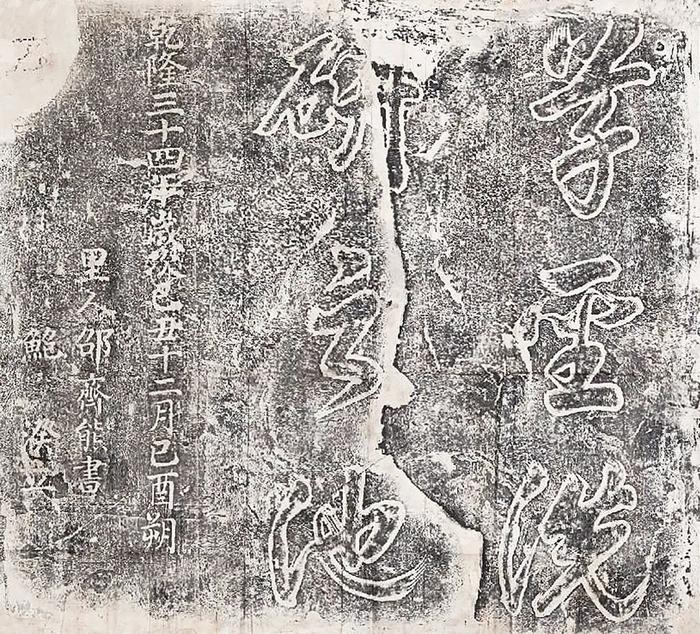 草聖洗
硯玄池
乾隆三十四年歲次己丑十二月己酉朔
里人邵齊能書
鮑 立